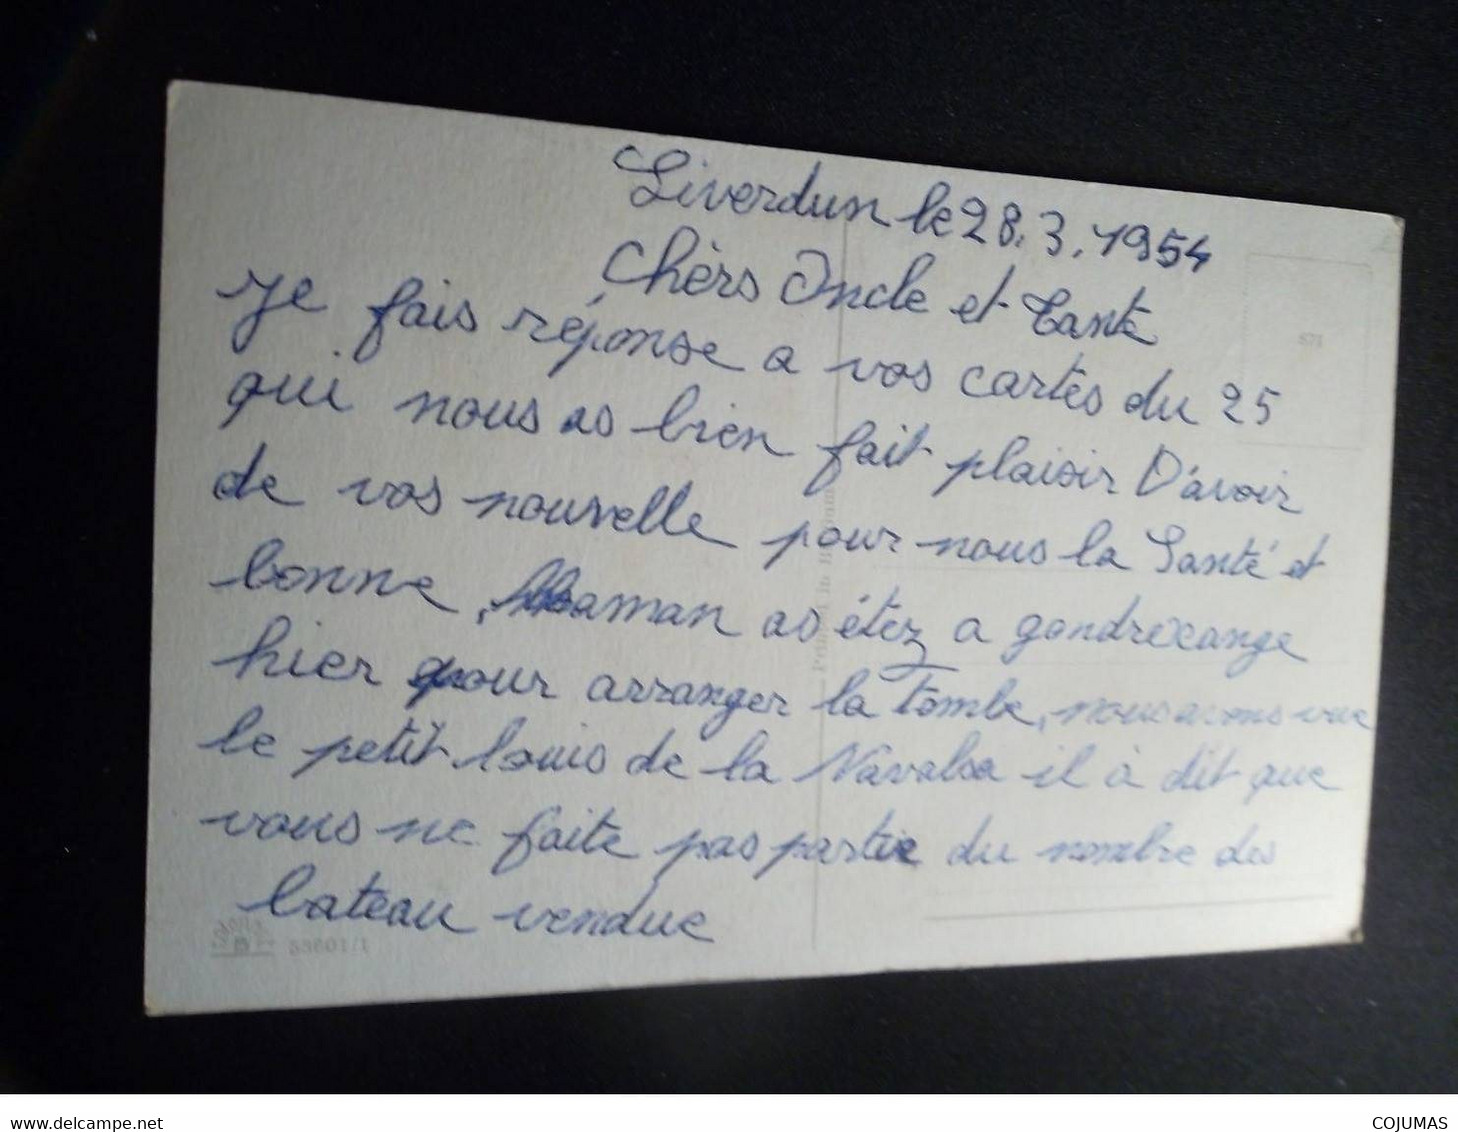 Liverdun le 28.3.1954
Chèrs Oncle et Tante
Je fais réponse a vos cartes du 25
qui nous as bien fait plaisir D'avoir
de vos nouvelle pour nous la Santé et
bonne, Maman as étez a gondrexange
hier pour arranger la tombe, nous avons vue
le petit louis de la Navalsa il à dit que
vous ne faite pas partie du nombre des
bateau vendue
www.delcampe.net
COJUMAS